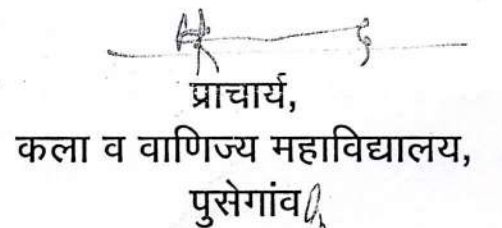 प्राचार्य,
कला व वाणिज्य महाविद्यालय,
पुसेगांव